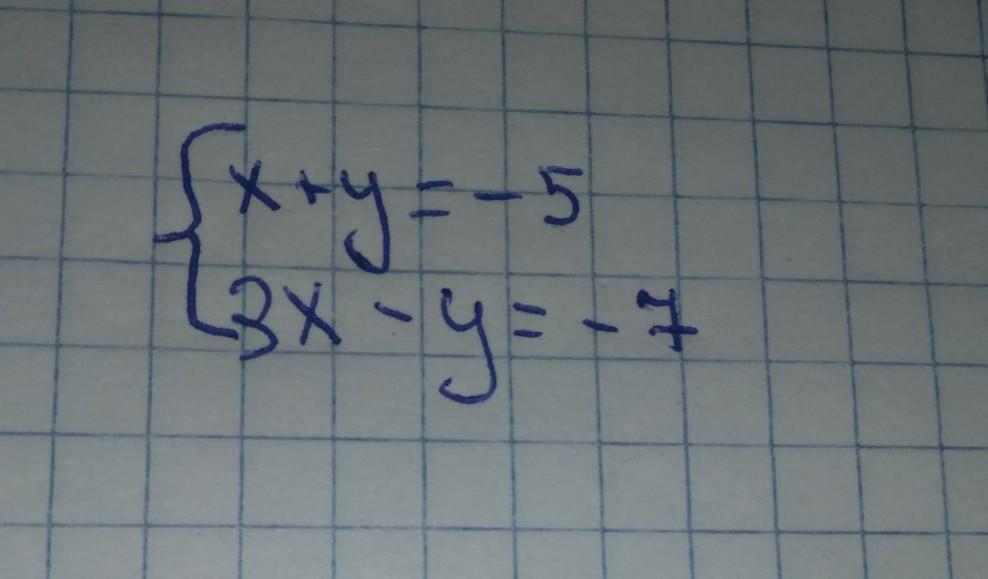 x+y=-5
3x-y=-7